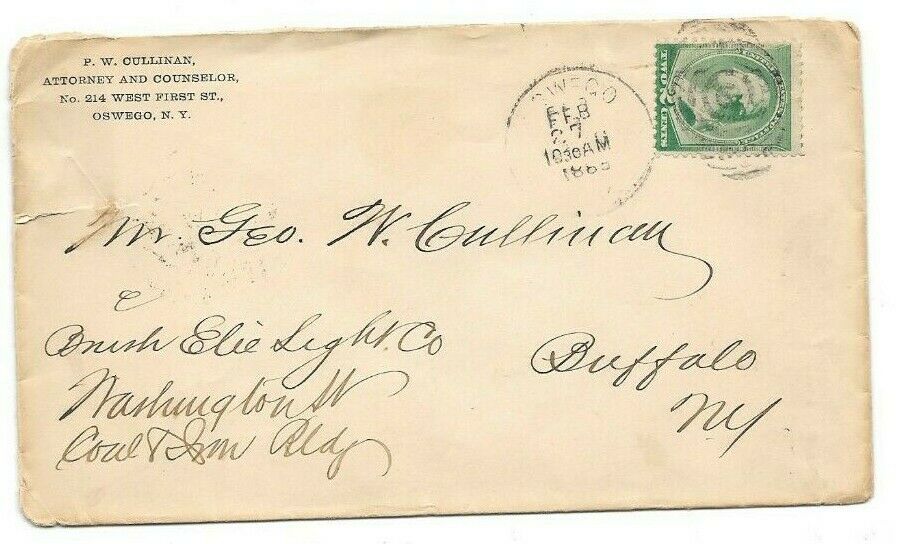 P. W. CULLINAN,
ATTORNEY AND COUNSELOR,
No. 214 WEST FIRST ST.,
OSWEGO, N. Y.
OSWEGO
FEB
27
1030AM
TWO 2 CENTS
Mr Geo. W. Cullinan
Brush Elec Light. Co
Washington St
Coal & Iron Bldg
Buffalo
NY